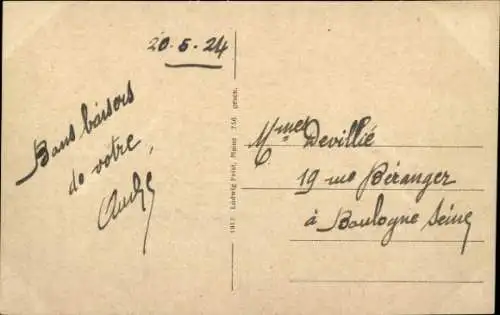 20-5-24
Bons baisers
de votre
André
1917 Ludwig Feist, Mainz 756 gesch.
Devillié
19 rue Béranger
à Boulogne Seine